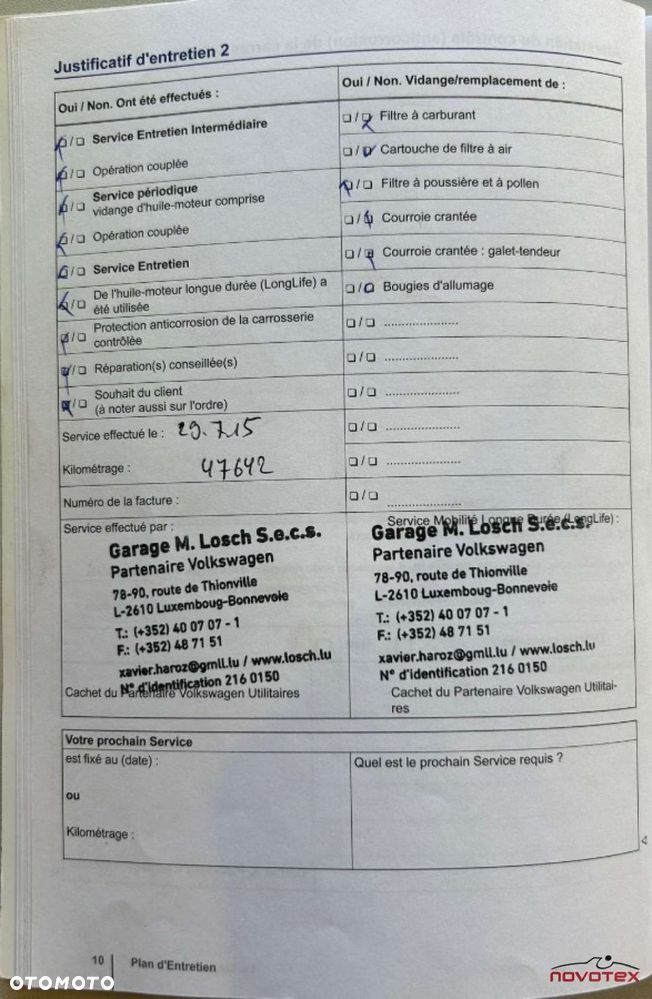 Justificatif d'entretien 2
Oui / Non. Ont été effectués :
☐/☐ Service Entretien Intermédiaire
☐/☐ Opération couplée
☐/☐ Service périodique
vidange d'huile-moteur comprise
☐/☐ Opération couplée
☐/☐ Service Entretien
☐/☐ De l'huile-moteur longue durée (LongLife) a
été utilisée
☐/☐ Protection anticorrosion de la carrosserie
contrôlée
☐/☐ Réparation(s) conseillée(s)
☐/☐ Souhait du client
(à noter aussi sur l'ordre)
Service effectué le : 29.7.15
Kilométrage : 47642
Numéro de la facture :
Oui / Non. Vidange/remplacement de :
☐/☐ Filtre à carburant
☐/☐ Cartouche de filtre à air
☐/☐ Filtre à poussière et à pollen
☐/☐ Courroie crantée
☐/☐ Courroie crantée : galet-tendeur
☐/☐ Bougies d'allumage
☐/☐ ......................
☐/☐ ......................
☐/☐ ......................
☐/☐ ......................
☐/☐ ......................
☐/☐ ......................
Service effectué par :
Garage M. Losch S.e.c.s.
Partenaire Volkswagen
78-90, route de Thionville
L-2610 Luxemboug-Bonnevoie
T.: (+352) 40 07 07 - 1
F.: (+352) 48 71 51
xavier.haroz@gmll.lu / www.losch.lu
N° d'identification 216 0150
Cachet du Partenaire Volkswagen Utilitaires
Service Mobilité Longue Durée (LongLife) :
Garage M. Losch S.e.c.s.
Partenaire Volkswagen
78-90, route de Thionville
L-2610 Luxemboug-Bonnevoie
T.: (+352) 40 07 07 - 1
F.: (+352) 48 71 51
xavier.haroz@gmll.lu / www.losch.lu
N° d'identification 216 0150
Cachet du Partenaire Volkswagen Utilitai-
res
Votre prochain Service
est fixé au (date) :
ou
Kilométrage :
Quel est le prochain Service requis ?
10 Plan d'Entretien
OTOMOTO
NOVOTEX